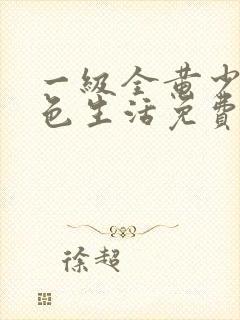 一級全黃少
色生活免費
徐超